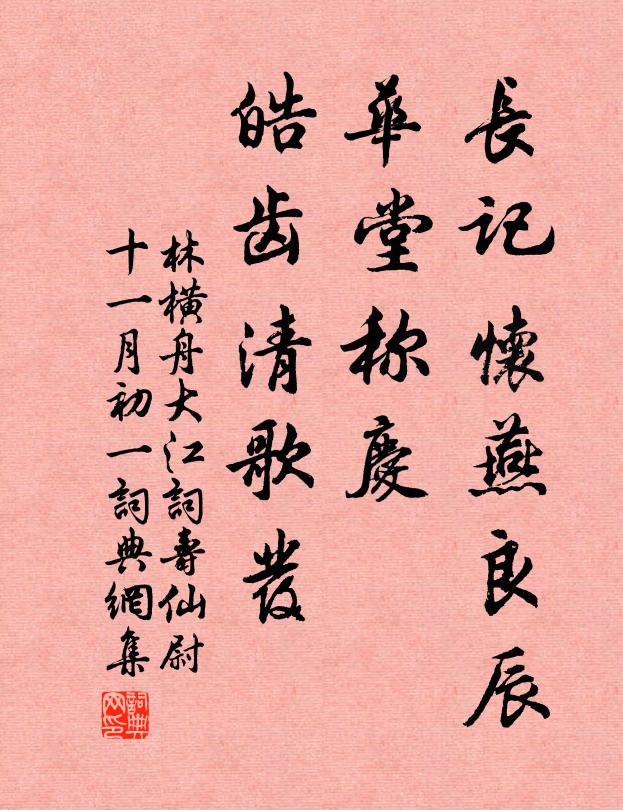 長記懷燕良辰
華堂称慶
皓齿清歌發
林橫舟大江詞壽仙尉
十一月初一詞典網集
詞典網印